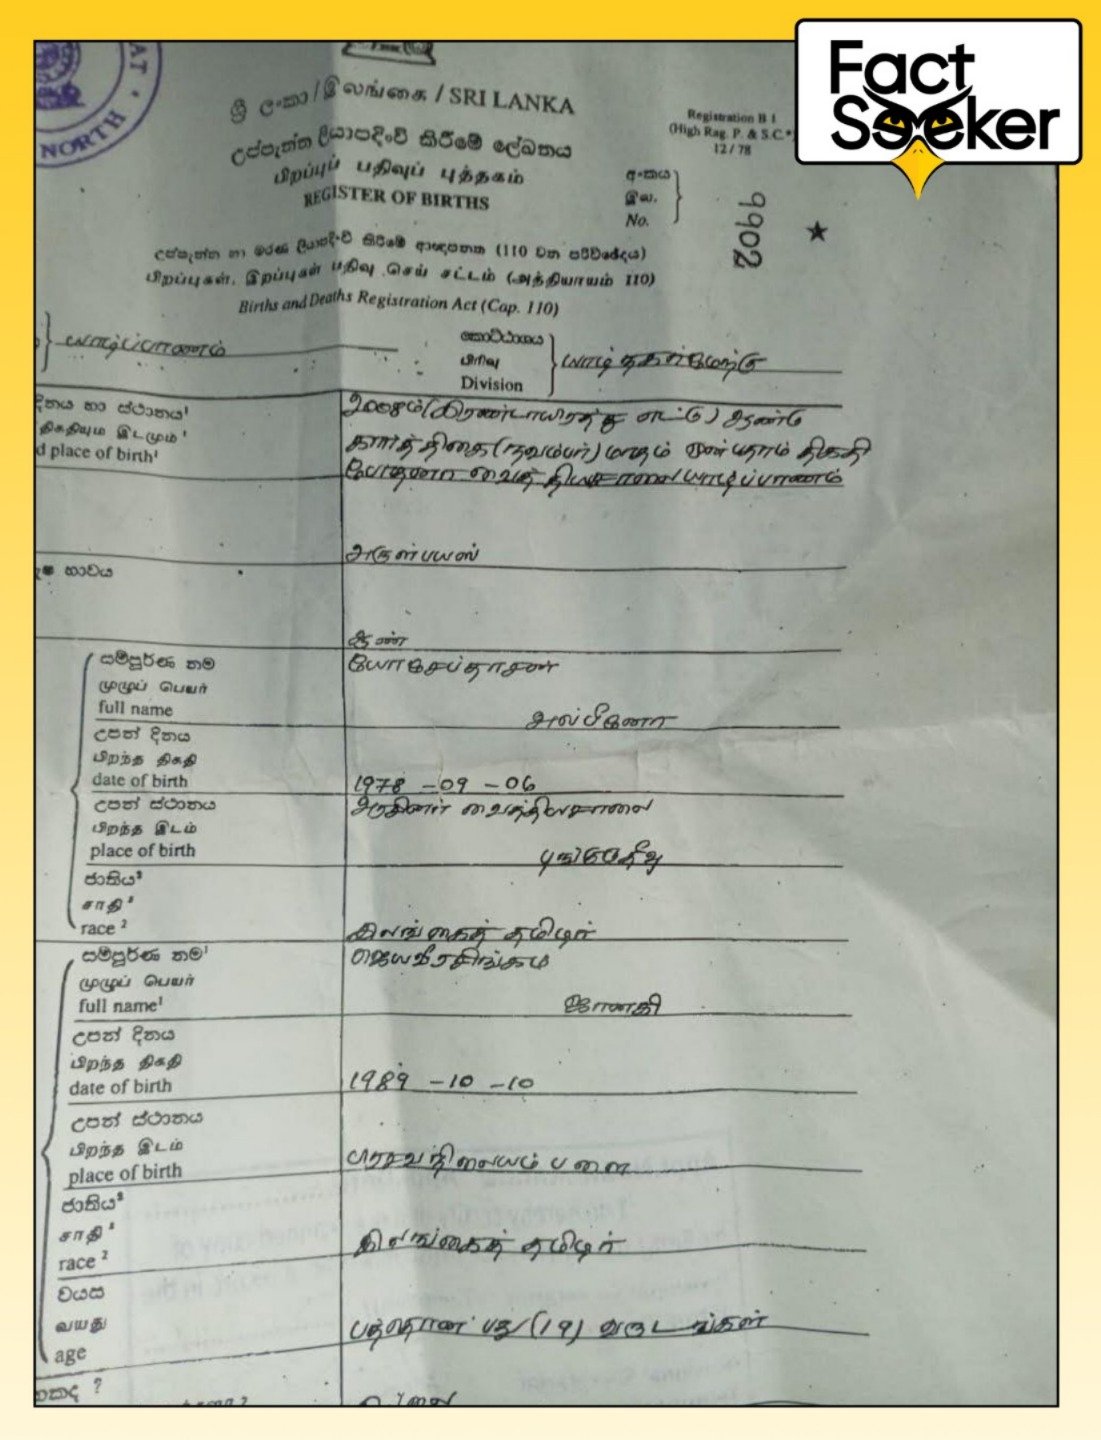 Fact
Seeker
AT
NORTH
ශ්‍රී ලංකා / இலங்கை / SRI LANKA
Registration B 1
(High Rag. P. & S.C.*)
12 / 78
උප්පැන්න ලියාපදිංචි කිරීමේ ලේඛනය
பிறப்புப் பதிவுப் புத்தகம்
REGISTER OF BIRTHS
අංකය
இல.
No.
9902
උප්පැන්න හා මරණ ලියාපදිංචි කිරීමේ ආඥපනත (110 වන පරිච්ඡේදය)
பிறப்புகள், இறப்புகள் பதிவு செய் சட்டம் (அத்தியாயம் 110)
Births and Deaths Registration Act (Cap. 110)
யாழ்ப்பாணம்
කොට්ඨාශය
பிரிவு
Division
යාழ்
දිනය හා ස්ථානය¹
திகதியும் இடமும்¹
d place of birth¹
2008ம் (இரண்டாயிரத்து எட்டு) ஆண்டு
கார்த்திகை (நவம்பர்) மாதம் ஒன்பதாம் திகதி
போதனா வைத்தியசாலை யாழ்ப்பாணம்
அருள்பயஸ்
භාවය
ஆண்
සම්පූර්ණ නම
முழுப் பெயர்
full name
யோசேப்தாசன்
அல்பினோ
උපන් දිනය
பிறந்த திகதி
date of birth
1978 - 09 - 06
උපන් ස්ථානය
பிறந்த இடம்
place of birth
வைத்தியசாலை
புங்குடுதீவு
ජාතිය²
சாதி²
race ²
இலங்கைத் தமிழர்
සම්පූර්ණ නම¹
முழுப் பெயர்
full name¹
ஜெயவீரசிங்கம்
ஜானகி
උපන් දිනය
பிறந்த திகதி
date of birth
1989 - 10 - 10
උපන් ස්ථානය
பிறந்த இடம்
place of birth
பிரசவநிலையம் பளை
ජාතිය²
சாதி²
race ²
இலங்கைத் தமிழர்
වයස
வயது
age
பத்தொன்பது (19) வருடங்கள்
இல்லை